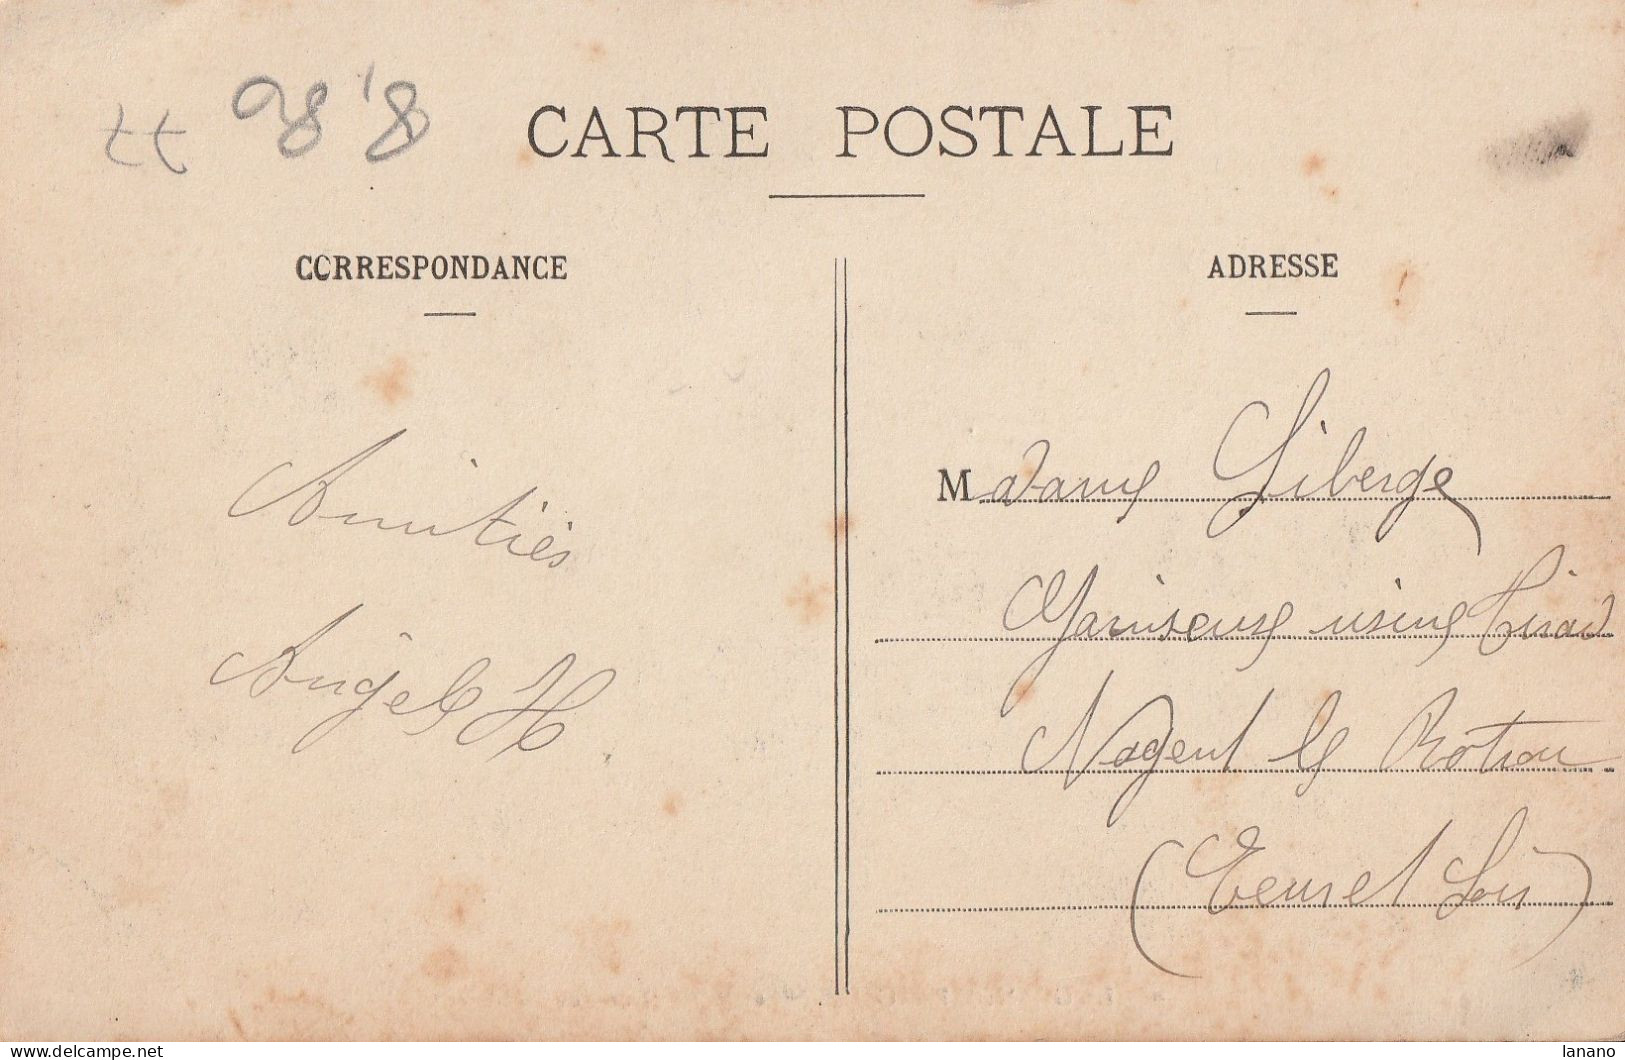 CARTE POSTALE
CORRESPONDANCE
Amitiés
Angele H
ADRESSE
Madame Liberge
usine
Nogent le Rotrou
(Eure et Loir)
www.delcampe.net
lanano